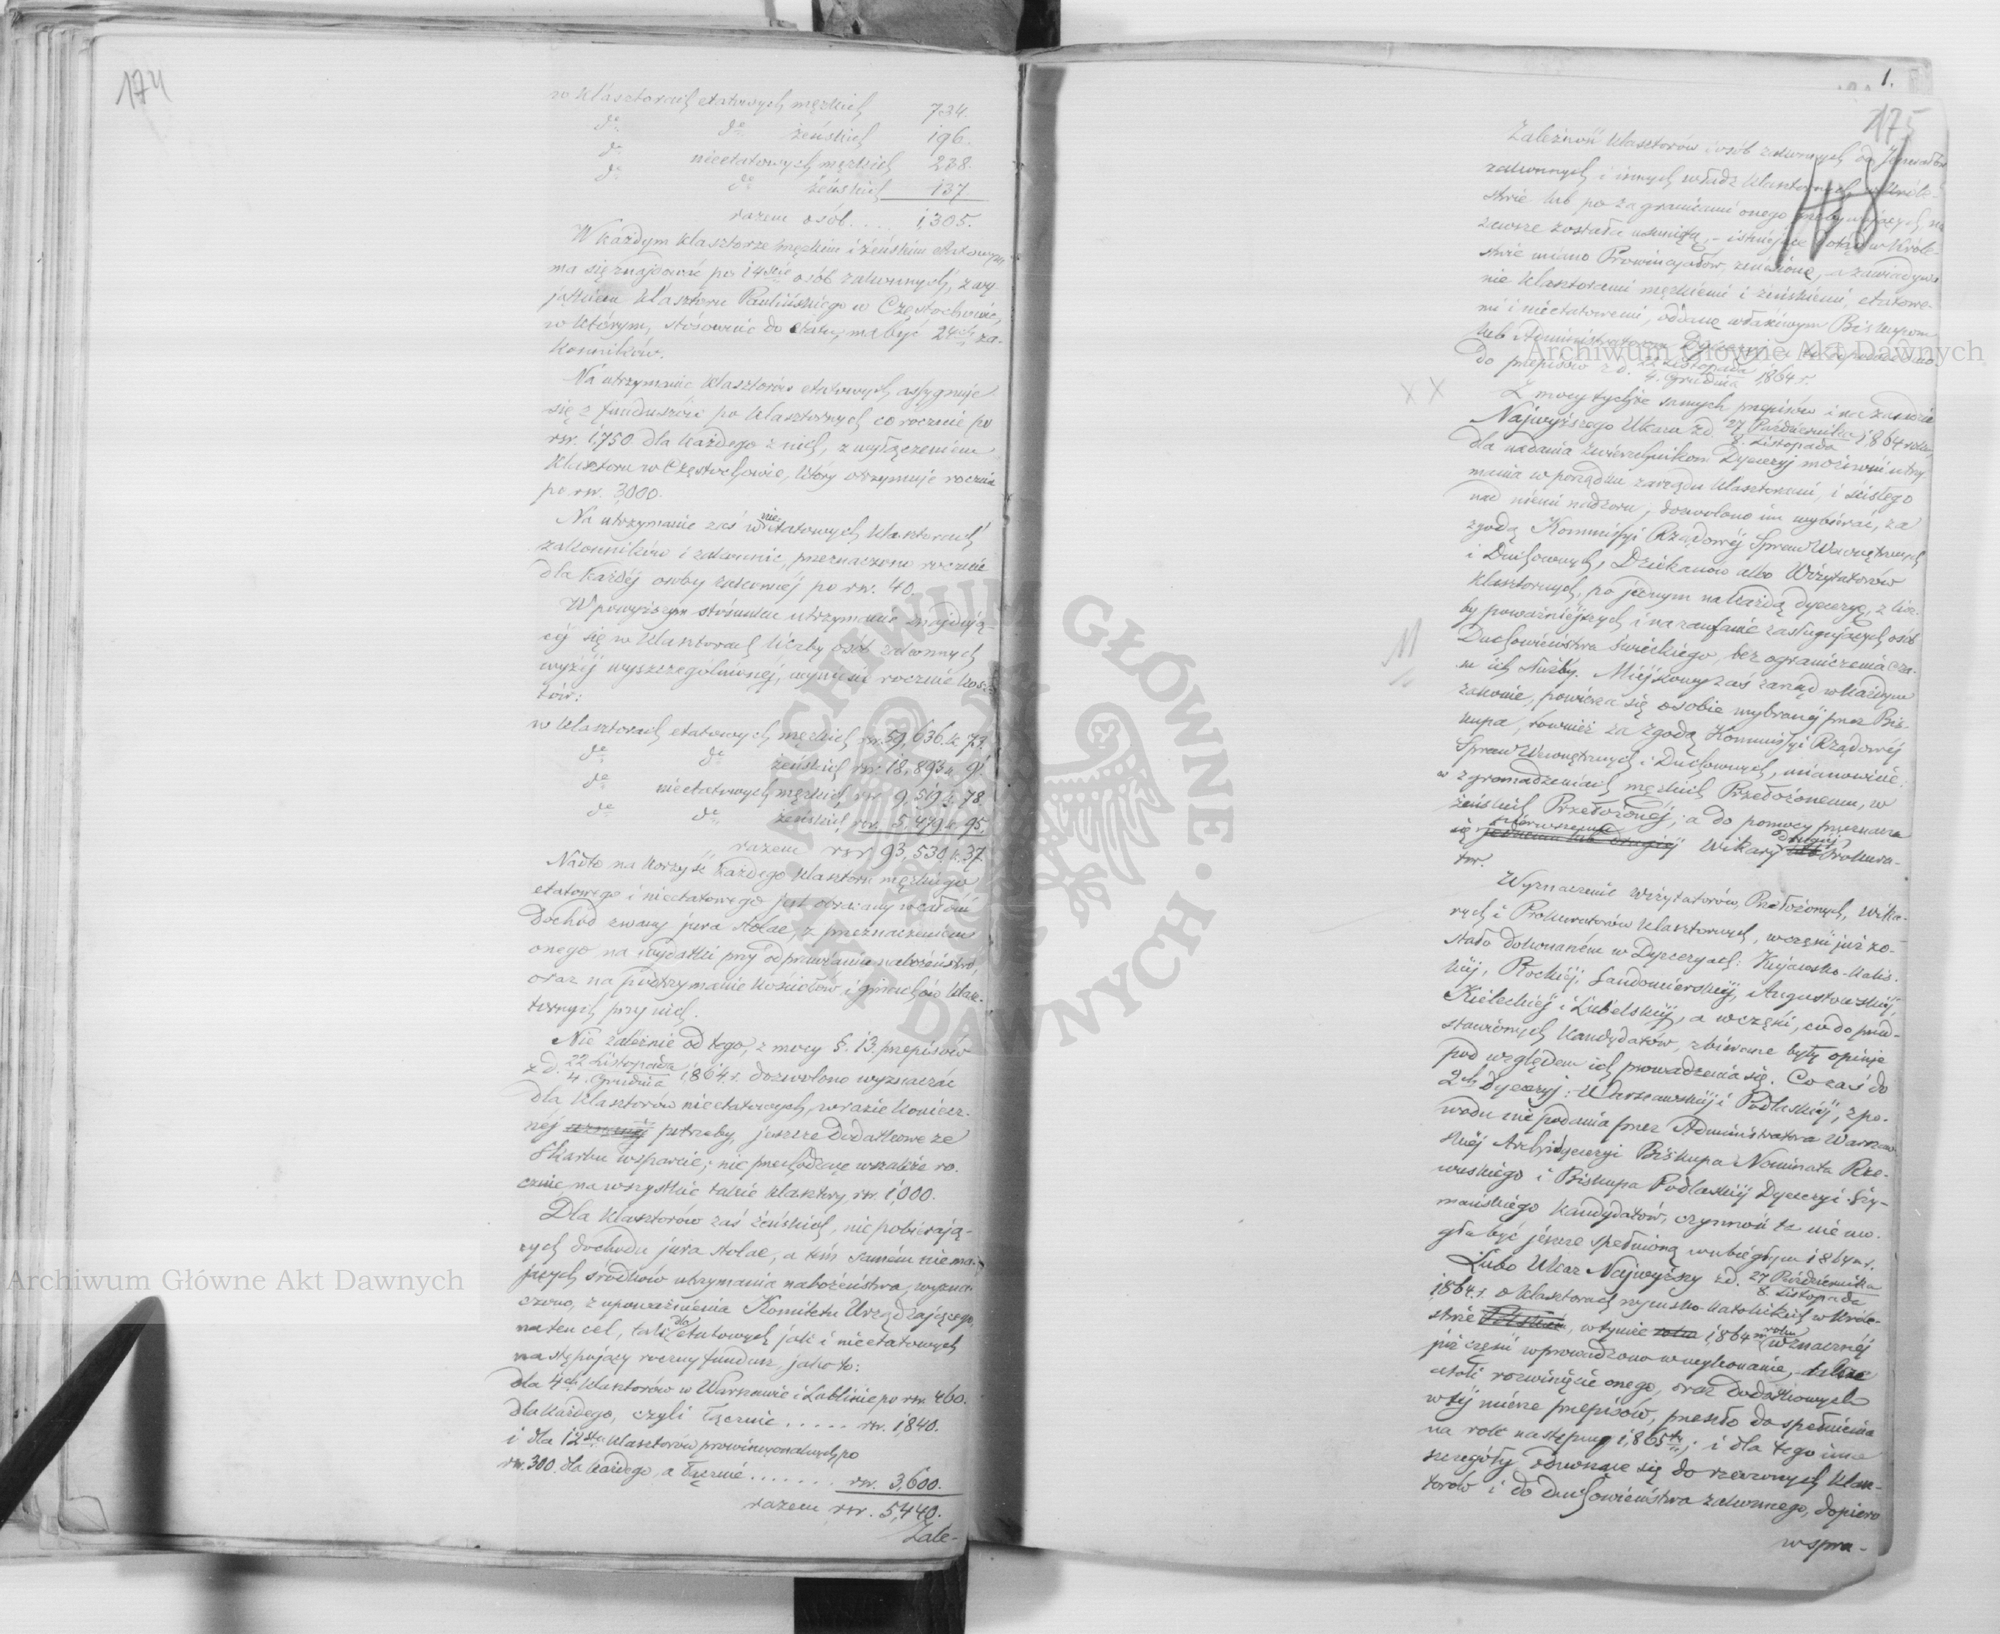 174
w klasztorach etatowych męzkich 734.
do do żeńskich 196.
do nieetatowych męzkich 238.
do do żeńskich 137
razem osób .... 1,305.
W każdym klasztorze męzkim i żeńskim etatowym
ma się znajdować po 14ście osób zakonnych, z wy-
jątkiem klasztoru Paulińskiego w Częstochowie,
w którym, stósownie do etatu, ma być 24ch za-
konników.
Na utrzymanie klasztorów etatowych assygnuje
się z funduszów po klasztornych corocznie po
rsr. 1,750. dla każdego z nich, z wyłączeniem
klasztoru w Częstochowie, który otrzymuje rocznie
po rsr. 3,000.
Na utrzymanie zaś w nieetatowych klasztorach
zakonników i zakonnic, przeznaczono rocznie
dla każdéj osoby zakonnéj po rsr. 40.
W powyższym stósunku utrzymanie znajdują-
céj się w klasztorach liczby osób zakonnych
wyżéj wyszczególnionéj, wynosi rocznie kosz-
tów:
w klasztorach etatowych męzkich rsr. 59,636 k. 73.
do do żeńskich rsr. 18,893 k. 91.
do nieetatowych męzkich rsr. 9,519 k. 78.
do do żeńskich rsr. 5,479 k. 95.
razem rsr. 93,530 k. 37
Nadto na korzyść każdego klasztoru męzkiego
etatowego i nieetatowego jest obracany w całości
dochód zwany jura stolae, z przeznaczeniem
onego na wydatki przy odprawianiu nabożeństw,
oraz na podtrzymanie kościołów i gmachów klasz-
tornych przy nich.
Nie zależnie od tego, z mocy §. 13. przepisów
z d. 22 Listopada / 4. Grudnia 1864 r. dozwolono wyznaczać
dla klasztorów nieetatowych, w razie koniecz-
néj potrzeby, jeszcze dodatkowe ze
Skarbu wsparcie, nie przechodzące wszakże ro-
cznie na wszystkie takie klasztory rsr. 1,000.
Dla klasztorów zaś żeńskich, nie pobierają-
cych dochodu jura stolae, a tém samém nie ma-
jących środków utrzymania nabożeństwa, wyzna-
czono, z upoważnienia Komitetu Urządzającego,
na ten cel, tak dla etatowych jak i nieetatowych
następujący roczny fundusz, jako to:
dla 4ch klasztorów w Warszawie i Lublinie po rsr. 460.
dla każdego, czyli łącznie ..... rsr. 1,840.
i dla 12stu klasztorów prowincyonalnych po
rsr. 300. dla każdego, a łącznie ....... rsr. 3,600.
razem rsr. 5,440.
Zale-
1.
175
Zależność klasztorów i osób zakonnych od Jenerałów
zakonnych i innych władz klasztornych, w Króle-
stwie lub po za granicami onego przebywających, na
zawsze została usuniętą, – istniejące dotąd w Króle-
stwie miano Prowincyałów, zniesione, a zawiadywa-
nie klasztorami męzkiemi i żeńskiemi, etatowe-
mi i nieetatowemi, oddane właściwym Biskupom
lub Administratorom Dyecezyj
do przepisów z d. 22 Listopada / 4. Grudnia 1864 r.
X X
Z mocy tychże samych przepisów i na zasadzie
Najwyższego Ukazu z d. 27 Października / 8. Listopada 1864 roku,
dla nadania zwierzchnikom Dyecezyj możności utrzy-
mania w porządku zarządu klasztorami, i ścisłego
nad niemi nadzoru, dozwolono im wybierać, za
zgodą Kommissyi Rządowéj Spraw Wewnętrznych
i Duchownych, Dziekanów albo Wizytatorów
klasztornych, po jednym na każdą dyecezyę, z licz-
by poważniejszych i na zaufanie zasługujących osób
Duchowieństwa świeckiego, bez ograniczenia cza-
su ich służby. Miejscowy zaś zarząd w każdym
zakonie, powierza się osobie wybranéj przez Bis-
kupa, również za zgodą Kommissyi Rządowéj
Spraw Wewnętrznych i Duchownych, mianowicie:
w zgromadzeniach męzkich Przełożonemu, w
żeńskich Przełożonéj, a do pomocy przeznacza
się pierwszemu jednemu lub drugiéj Wikary drugiéj Prokura-
tor.
Wyznaczenie Wizytatorów, Przełożonych, Wika-
rych i Prokuratorów klasztornych, w części już zo-
stało dokonaném w Dyecezyach: Kujawsko-Kalis-
kiéj, Płockiéj, Sandomierskiéj, Augustowskiéj,
Kieleckiéj i Lubelskiéj, a w części, co do przed-
stawionych kandydatów, zbierane były opinje
pod względem ich prowadzenia się. Co zaś do
2ch Dyecezyj: Warszawskiéj i Podlaskiéj, z po-
wodu nie podania przez Administratora Warszaw-
skiéj Archidyecezyi Biskupa Nominata Rze-
wuskiego i Biskupa Podlaskiéj Dyecezyi Szy-
mańskiego kandydatów, czynność ta nie mo-
gła być jeszcze spełnioną w ubiegłym 1864 r.
Lubo Ukaz Najwyższy z d. 27 Października / 8. Listopada
1864 r. o klasztorach rzymsko-katolickich w Króle-
stwie Polskiém, w tymże roku 1864m roku w znacznéj
już części wprowadzono w wykonanie, – dalsze
atoli rozwinięcie onego, oraz dodatkowych
w téj mierze przepisów, przeszło do spełnienia
na rok następny 1,865ty; i dla tego inne
szczegóły odnoszące się do rzeczonych klasz-
torów i do duchowieństwa zakonnego, dopiero
w spra-
Archiwum Główne Akt Dawnych
Archiwum Główne Akt Dawnych
ARCHIWUM GŁÓWNE AKT DAWNYCH